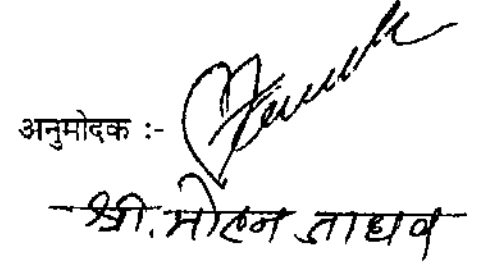 अनुमोदक :-
श्री. मोहन जाधव